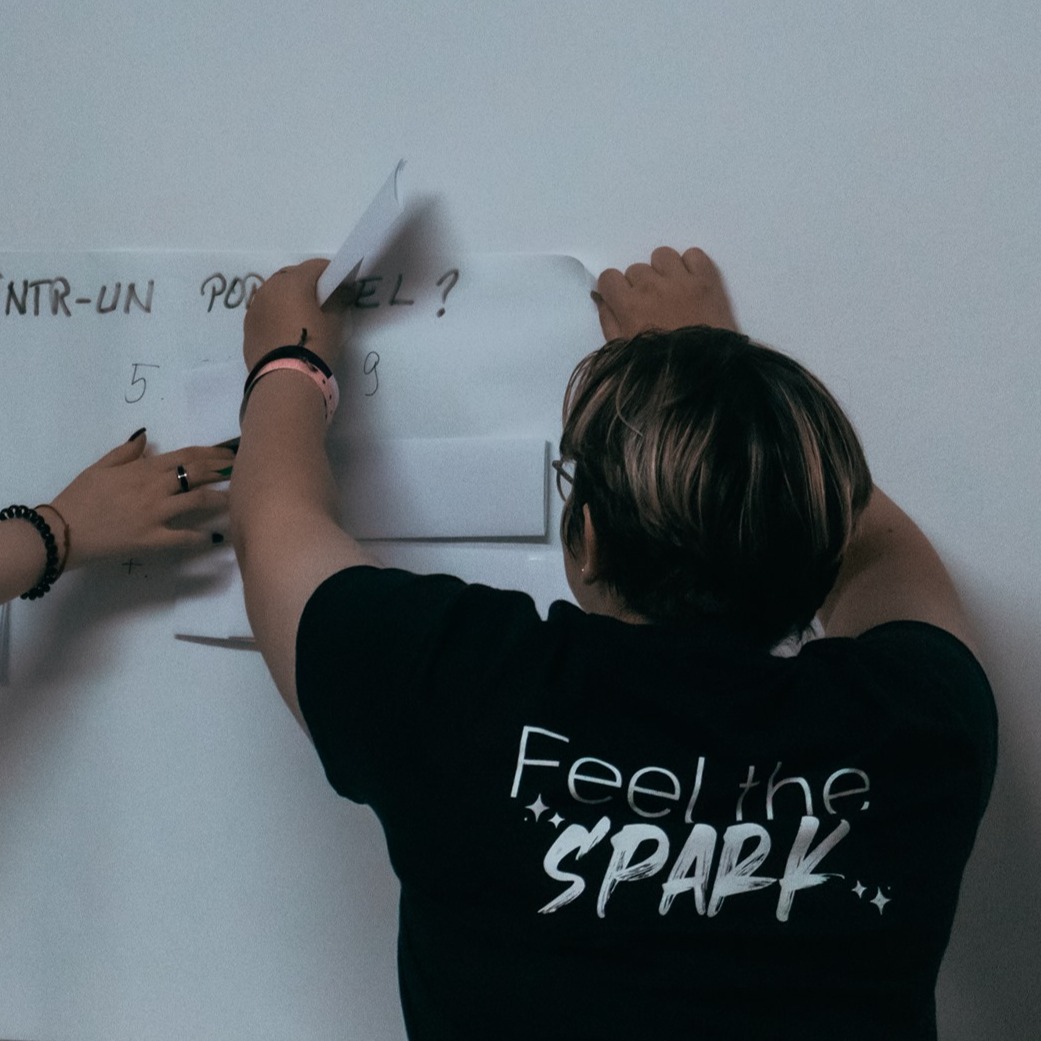 ÎNTR-UN EL ?
5. 9
+.
Feel the
SPARK